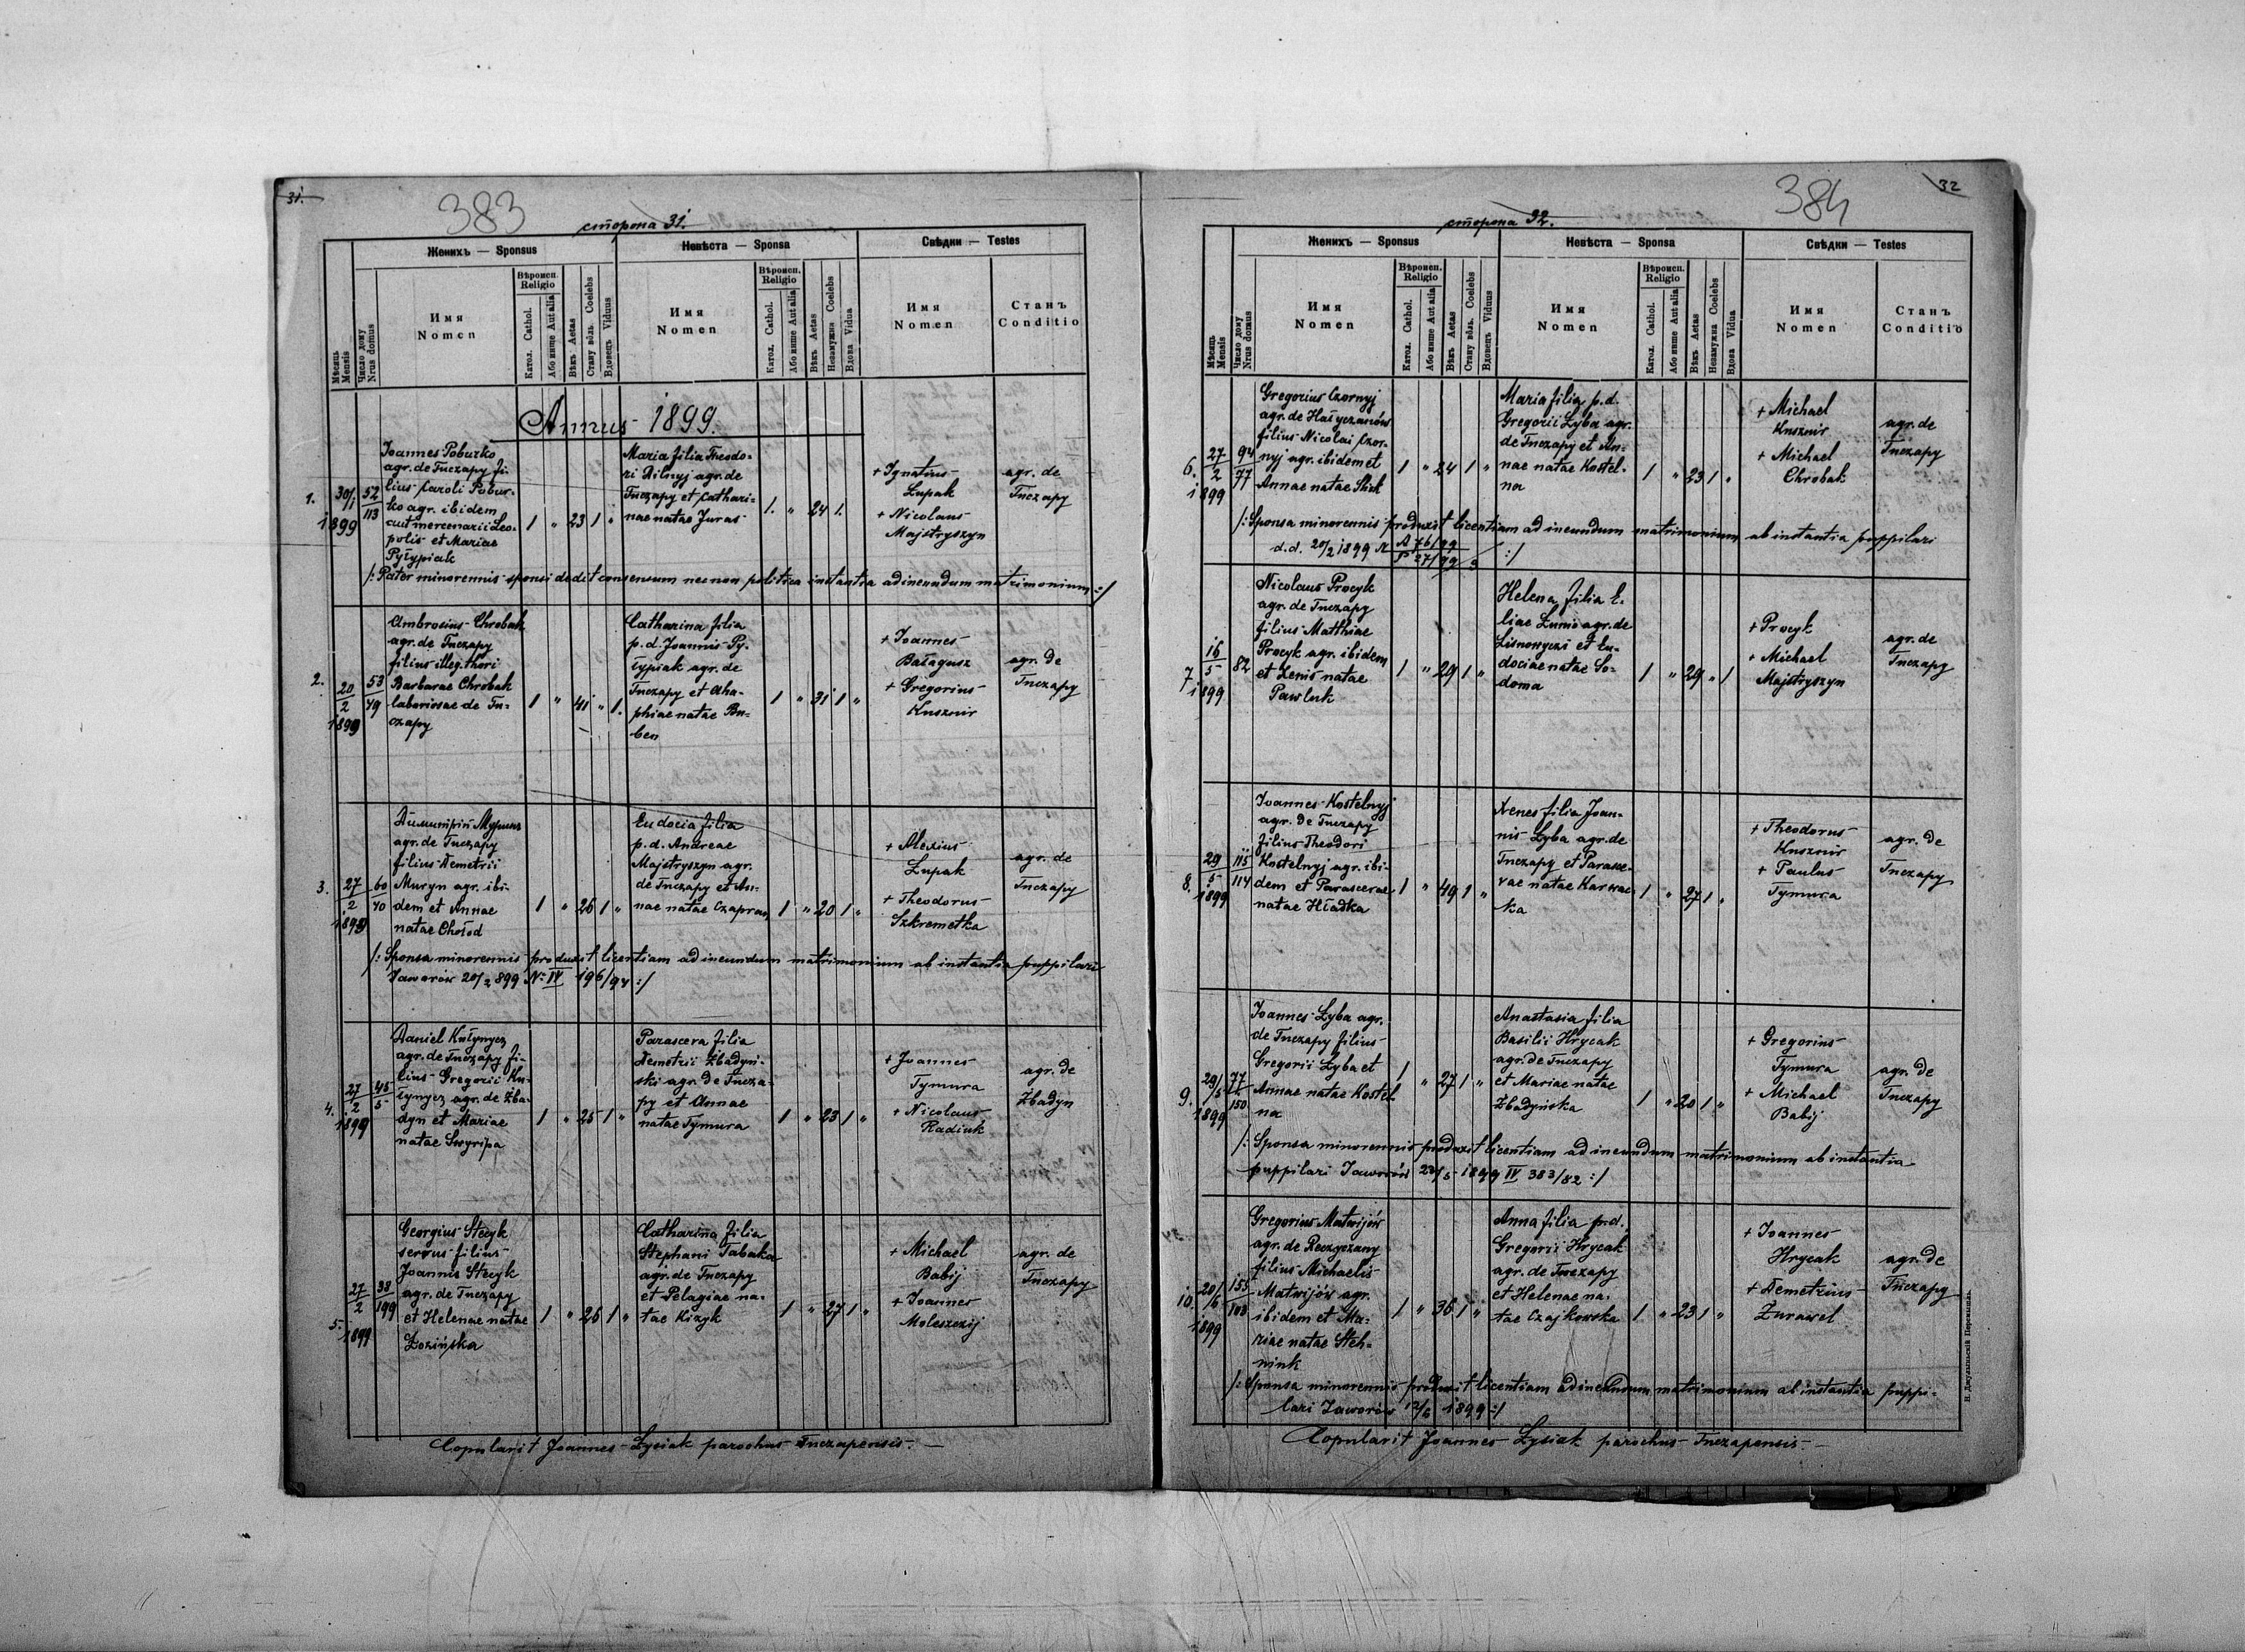 31.
383
сторона 31.
Женихъ — Sponsus
Невѣста — Sponsa
Свѣдки — Testes
Мѣсяць Mensis
Число дому Nrus domus
Имя Nomen
Вѣроисп. Religio
Катол. Cathol.
Або инше Aut alia
Вѣкъ Aetas
Стану вôль. Coelebs
Вдовець Viduus
Имя Nomen
Вѣроисп. Religio
Катол. Cathol.
Або инше Aut alia
Вѣкъ Aetas
Незамужна Coelebs
Вдова Vidua
Имя Nomen
Станъ Conditio
Annus 1899.
1.
30/1 1899
52/113
Joannes Poburko
agr. de Tuczapy fi-
lius Caroli Pobur-
ko agr. ibidem
aut mercenarii Leo-
polis et Mariae
Pyłypiak
1 " 23 1 "
Maria filia Theodo-
ri Bilnyj agr. de
Tuczapy et Cathari-
nae natae Juras
1. " 24 1.
+ Ignatius
Łupak
+ Nicolaus
Majstryszyn
agr. de
Tuczapy
/: Pater minorennis sponsi dedit consensum nec non politica instantia ad ineundum matrimonium :/
2.
20/2 1899
53/79
Ambrosius Chrobak
agr. de Tuczapy
filius illeg. thori
Barbarae Chrobak
laboriosae de Tu-
czapy
1 " 41 " 1.
Catharina filia
p. d. Joannis Py-
łypiak agr. de
Tuczapy et Aha-
phiae natae Bu-
ben
1 " 31 1 "
+ Joannes
Bałagusz
+ Gregorius
Kusznir
agr. de
Tuczapy
3.
27/2 1899
60/70
Димитрій Муринъ
agr. de Tuczapy
filius Demetrii
Muryn agr. ibi-
dem et Annae
natae Chołod
1 " 26 1 "
Eudocia filia
p. d. Andreae
Majstryszyn agr.
de Tuczapy et An-
nae natae Czapran
1 " 20 1 "
+ Alexius
Łupak
+ Theodorus
Szkremetka
agr. de
Tuczapy
/: Sponsa minorennis produxit licentiam ad ineundum matrimonium ab instantia puppilari
Jaworów 20/2 899 No IV 196/94 :/
4.
27/2 1899
45/5
Daniel Kułynycz
agr. de Tuczapy fi-
lius Gregorii Ku-
łynycz agr. de Zba-
dyn et Mariae
natae Swyripa
1 " 25 1 "
Parascera filia
Demetrii Zbadyń-
ski agr. de Tucza-
py et Annae
natae Tymura
1 " 23 1 "
+ Joannes
Tymura
+ Nicolaus
Radiuk
agr. de
Zbadyn
5.
27/2 1899
38/199
Georgius Stecyk
servus filius
Joannis Stecyk
agr. de Tuczapy
et Helenae natae
Łozińska
1 " 26 1 "
Catharina filia
Stephani Tabaka
agr. de Tuczapy
et Pelagiae na-
tae Kizyk
1 " 27 1 "
+ Michael
Babij
+ Joannes
Moleszczij
agr. de
Tuczapy
Copulavit Joannes Łysiak parochus Tuczapensis.
32
384
сторона 32.
Женихъ — Sponsus
Невѣста — Sponsa
Свѣдки — Testes
Мѣсяць Mensis
Число дому Nrus domus
Имя Nomen
Вѣроисп. Religio
Катол. Cathol.
Або инше Aut alia
Вѣкъ Aetas
Стану вôль. Coelebs
Вдовець Viduus
Имя Nomen
Вѣроисп. Religio
Катол. Cathol.
Або инше Aut alia
Вѣкъ Aetas
Незамужна Coelebs
Вдова Vidua
Имя Nomen
Станъ Conditio
6.
27/2 1899
94/77
Gregorius Czornyj
agr. de Hałyczanów
filius Nicolai Czor-
nyj agr. ibidem et
Annae natae Shick
1 " 24 1 "
Maria filia p. d.
Gregorii Łyba agr.
de Tuczapy et An-
nae natae Kostel-
na
1 " 23 1 "
+ Michael
Kusznir
+ Michael
Chrobak
agr. de
Tuczapy
/: Sponsa minorennis produxit licentiam ad ineundum matrimonium ab instantia puppilari
d. d. 20/2 1899 N A 76/99 P 27/99 3 :/
7.
16/5 1899
82
Nicolaus Procyk
agr. de Tuczapy
filius Matthiae
Procyk agr. ibidem
et Zenis natae
Pawluk
1 " 29 1 "
Helena filia E-
liae Łunio agr. de
Lisnowyczi et Eu-
dociae natae So-
doma
1 " 29 " 1
+ Procyk
+ Michael
Majstryszyn
agr. de
Tuczapy
8.
29/5 1899
115/114
Joannes Kostelnyj
agr. de Tuczapy
filius Theodori
Kostelnyj agr. ibi-
dem et Parascevae
natae Hładka
1 " 49 1 "
Xenes filia Joan-
nis Łyba agr. de
Tuczapy et Parasce-
vae natae Karwac-
ka
1 " 27 1 "
+ Theodorus
Kusznir
+ Paulus
Tymura
agr. de
Tuczapy
9.
29/5 1899
77/150
Joannes Łyba agr.
de Tuczapy filius
Gregorii Łyba et
Annae natae Kostel
na
1 " 27 1 "
Anastasia filia
Basilii Hrycak
agr. de Tuczapy
et Mariae natae
Zbadyńska
1 " 20 1 "
+ Gregorius
Tymura
+ Michael
Babij
agr. de
Tuczapy
/: Sponsa minorennis produxit licentiam ad ineundum matrimonium ab instantia
puppilari Jaworów 22/5 1899 IV 383/82 :/
10.
20/6 1899
155/108
Gregorius Matwijów
agr. de Reczyczany
filius Michaelis
Matwijów agr.
ibidem et Ma-
riae natae Steh-
niuk
1 " 36 1 "
Anna filia p. d.
Gregorii Hrycak
agr. de Tuczapy
et Helenae na-
tae Czajkowska
1 " 23 1 "
+ Joannes
Hrycak
+ Demetrius
Żurawel
agr. de
Tuczapy
/: Sponsa minorennis produxit licentiam ad ineundum matrimonium ab instantia puppi-
lari Jaworów 12/6 1899 :/
Copulavit Joannes Łysiak parochus Tuczapensis.